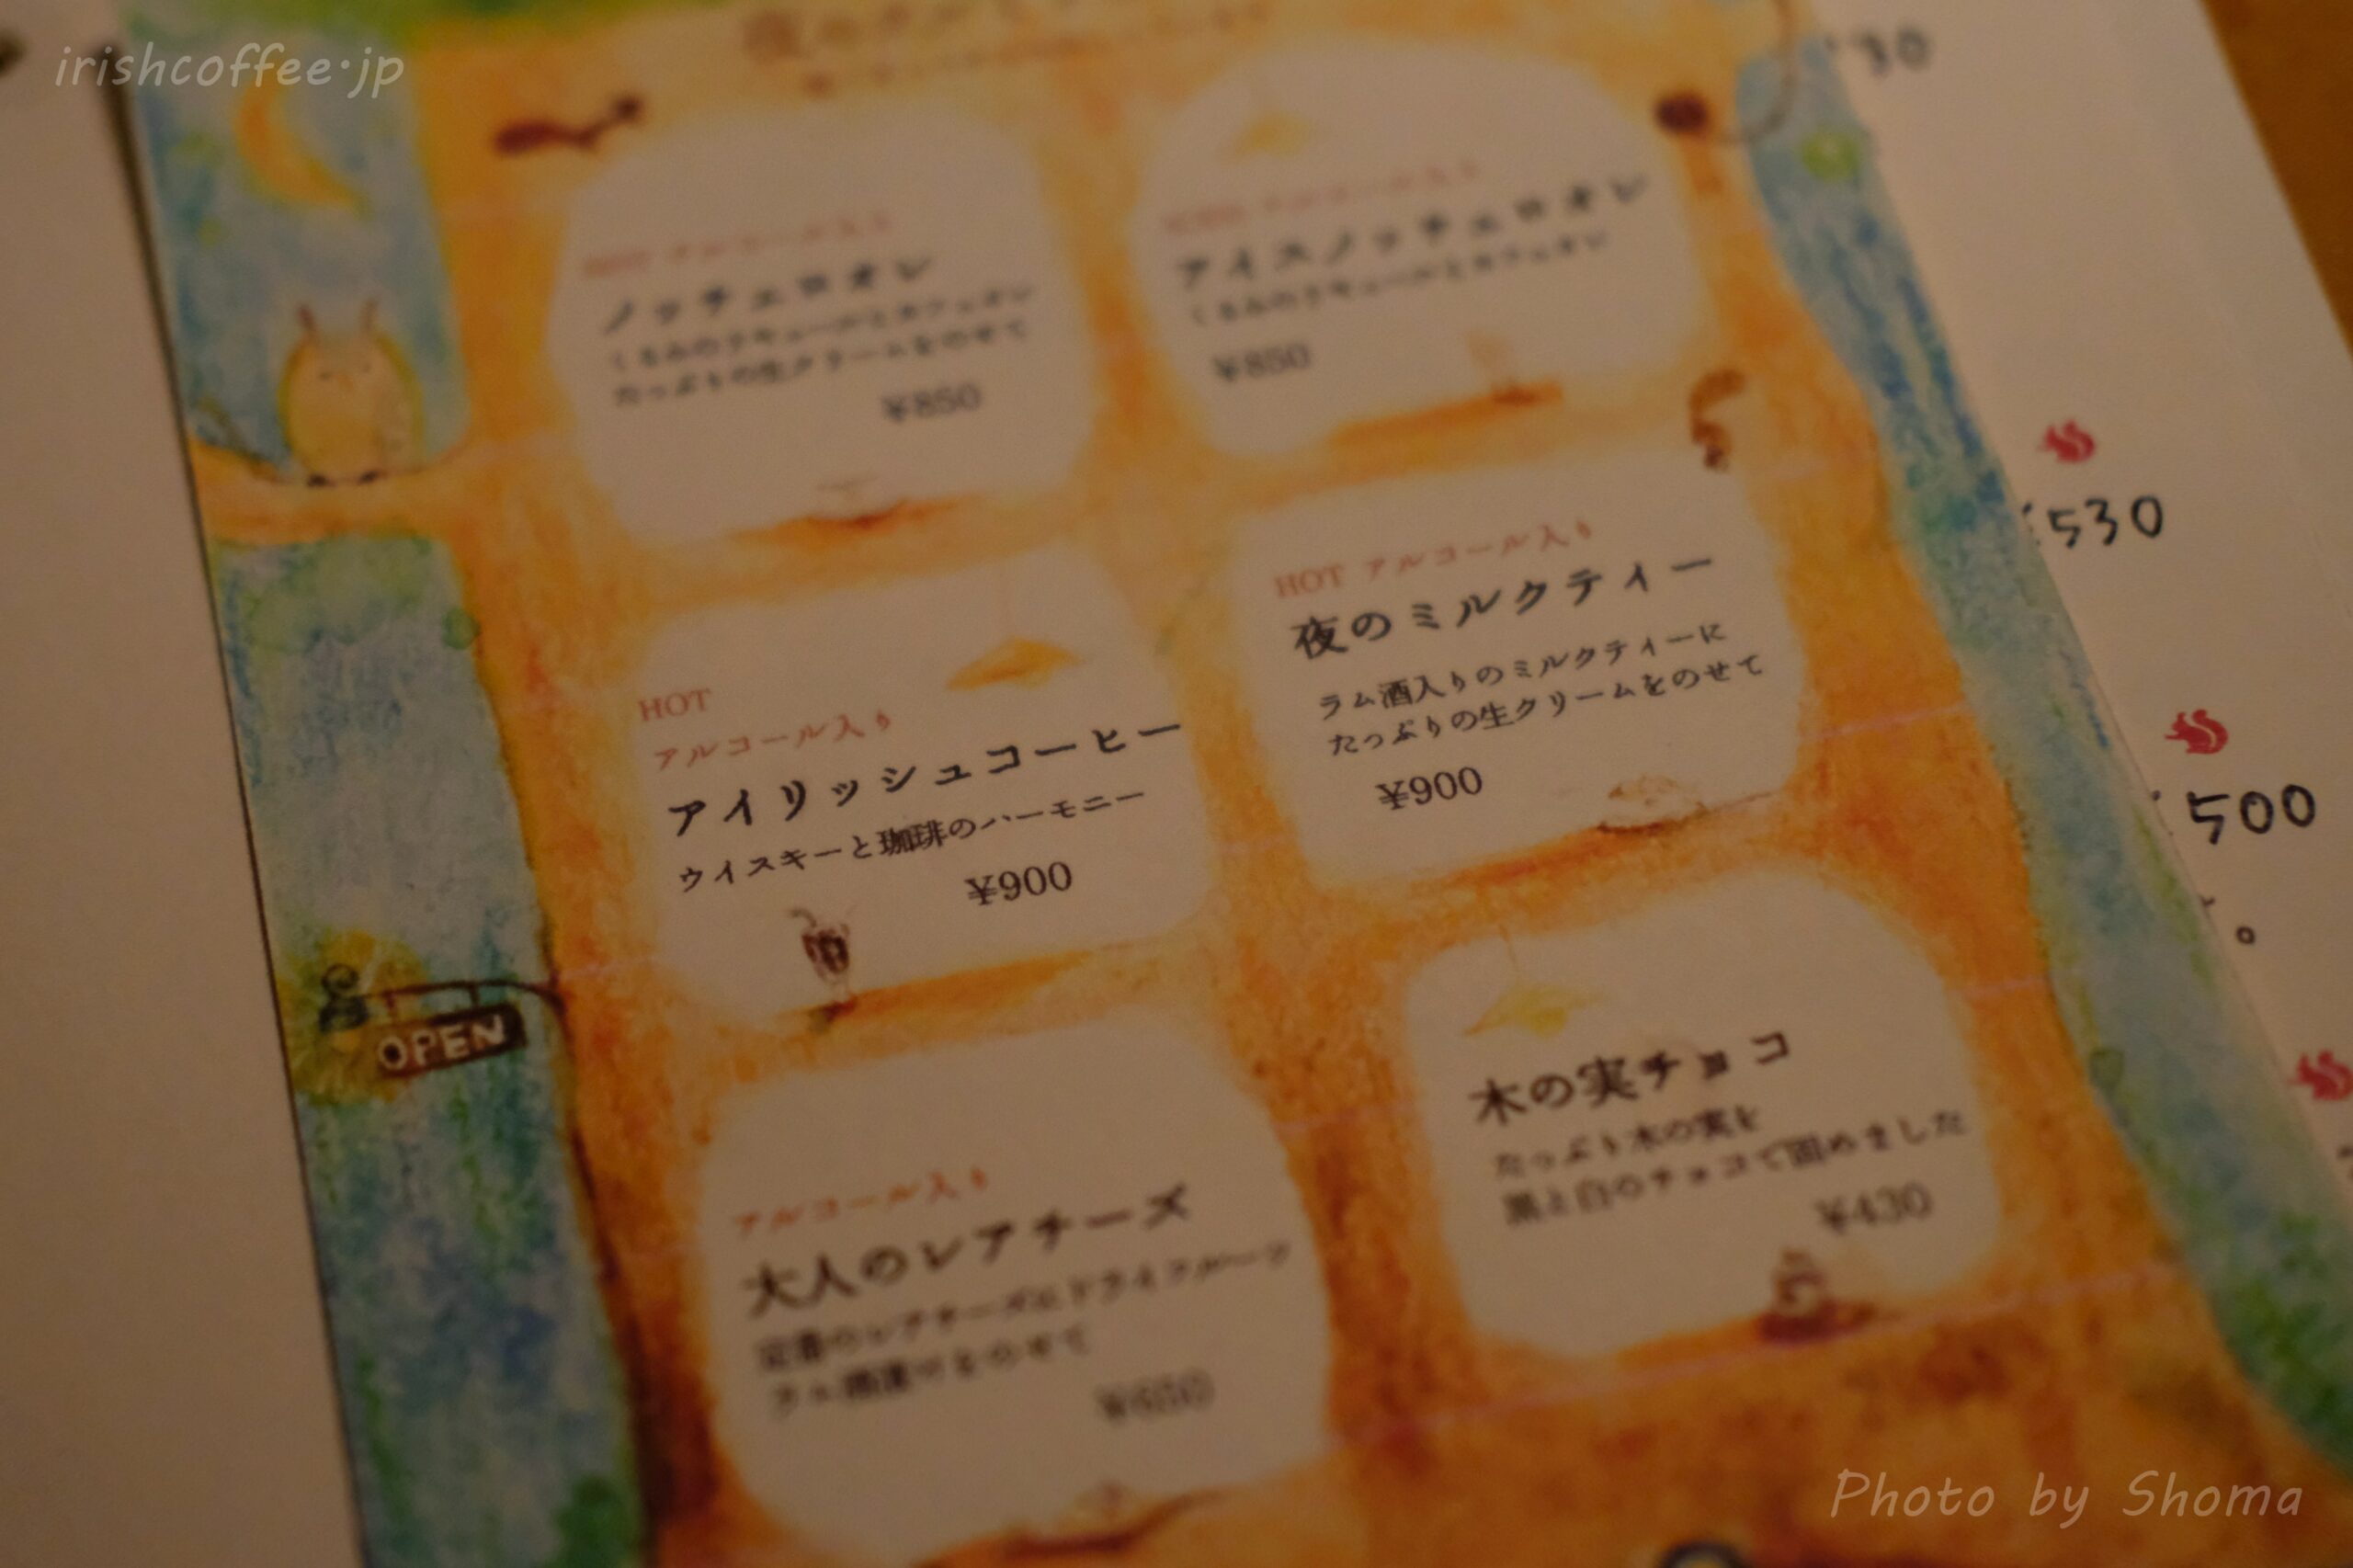 irishcoffee・jp
30
HOT アルコール入り
ノッチェロオレ
くるみのリキュールとカフェオレ
たっぷりの生クリームをのせて
¥850
アルコール入り
アイスノッチェロオレ
くるみのリキュールとカフェオレ
¥850
HOT
アルコール入り
アイリッシュコーヒー
ウイスキーと珈琲のハーモニー
¥900
HOT アルコール入り
夜のミルクティー
ラム酒入りのミルクティーに
たっぷりの生クリームをのせて
¥900
アルコール入り
大人のレアチーズ
定番のレアチーズにドライフルーツ
ラム酒漬けをのせて
¥650
木の実チョコ
たっぷり木の実を
黒と白のチョコで固めました
¥430
OPEN
¥530
500
Photo by Shoma